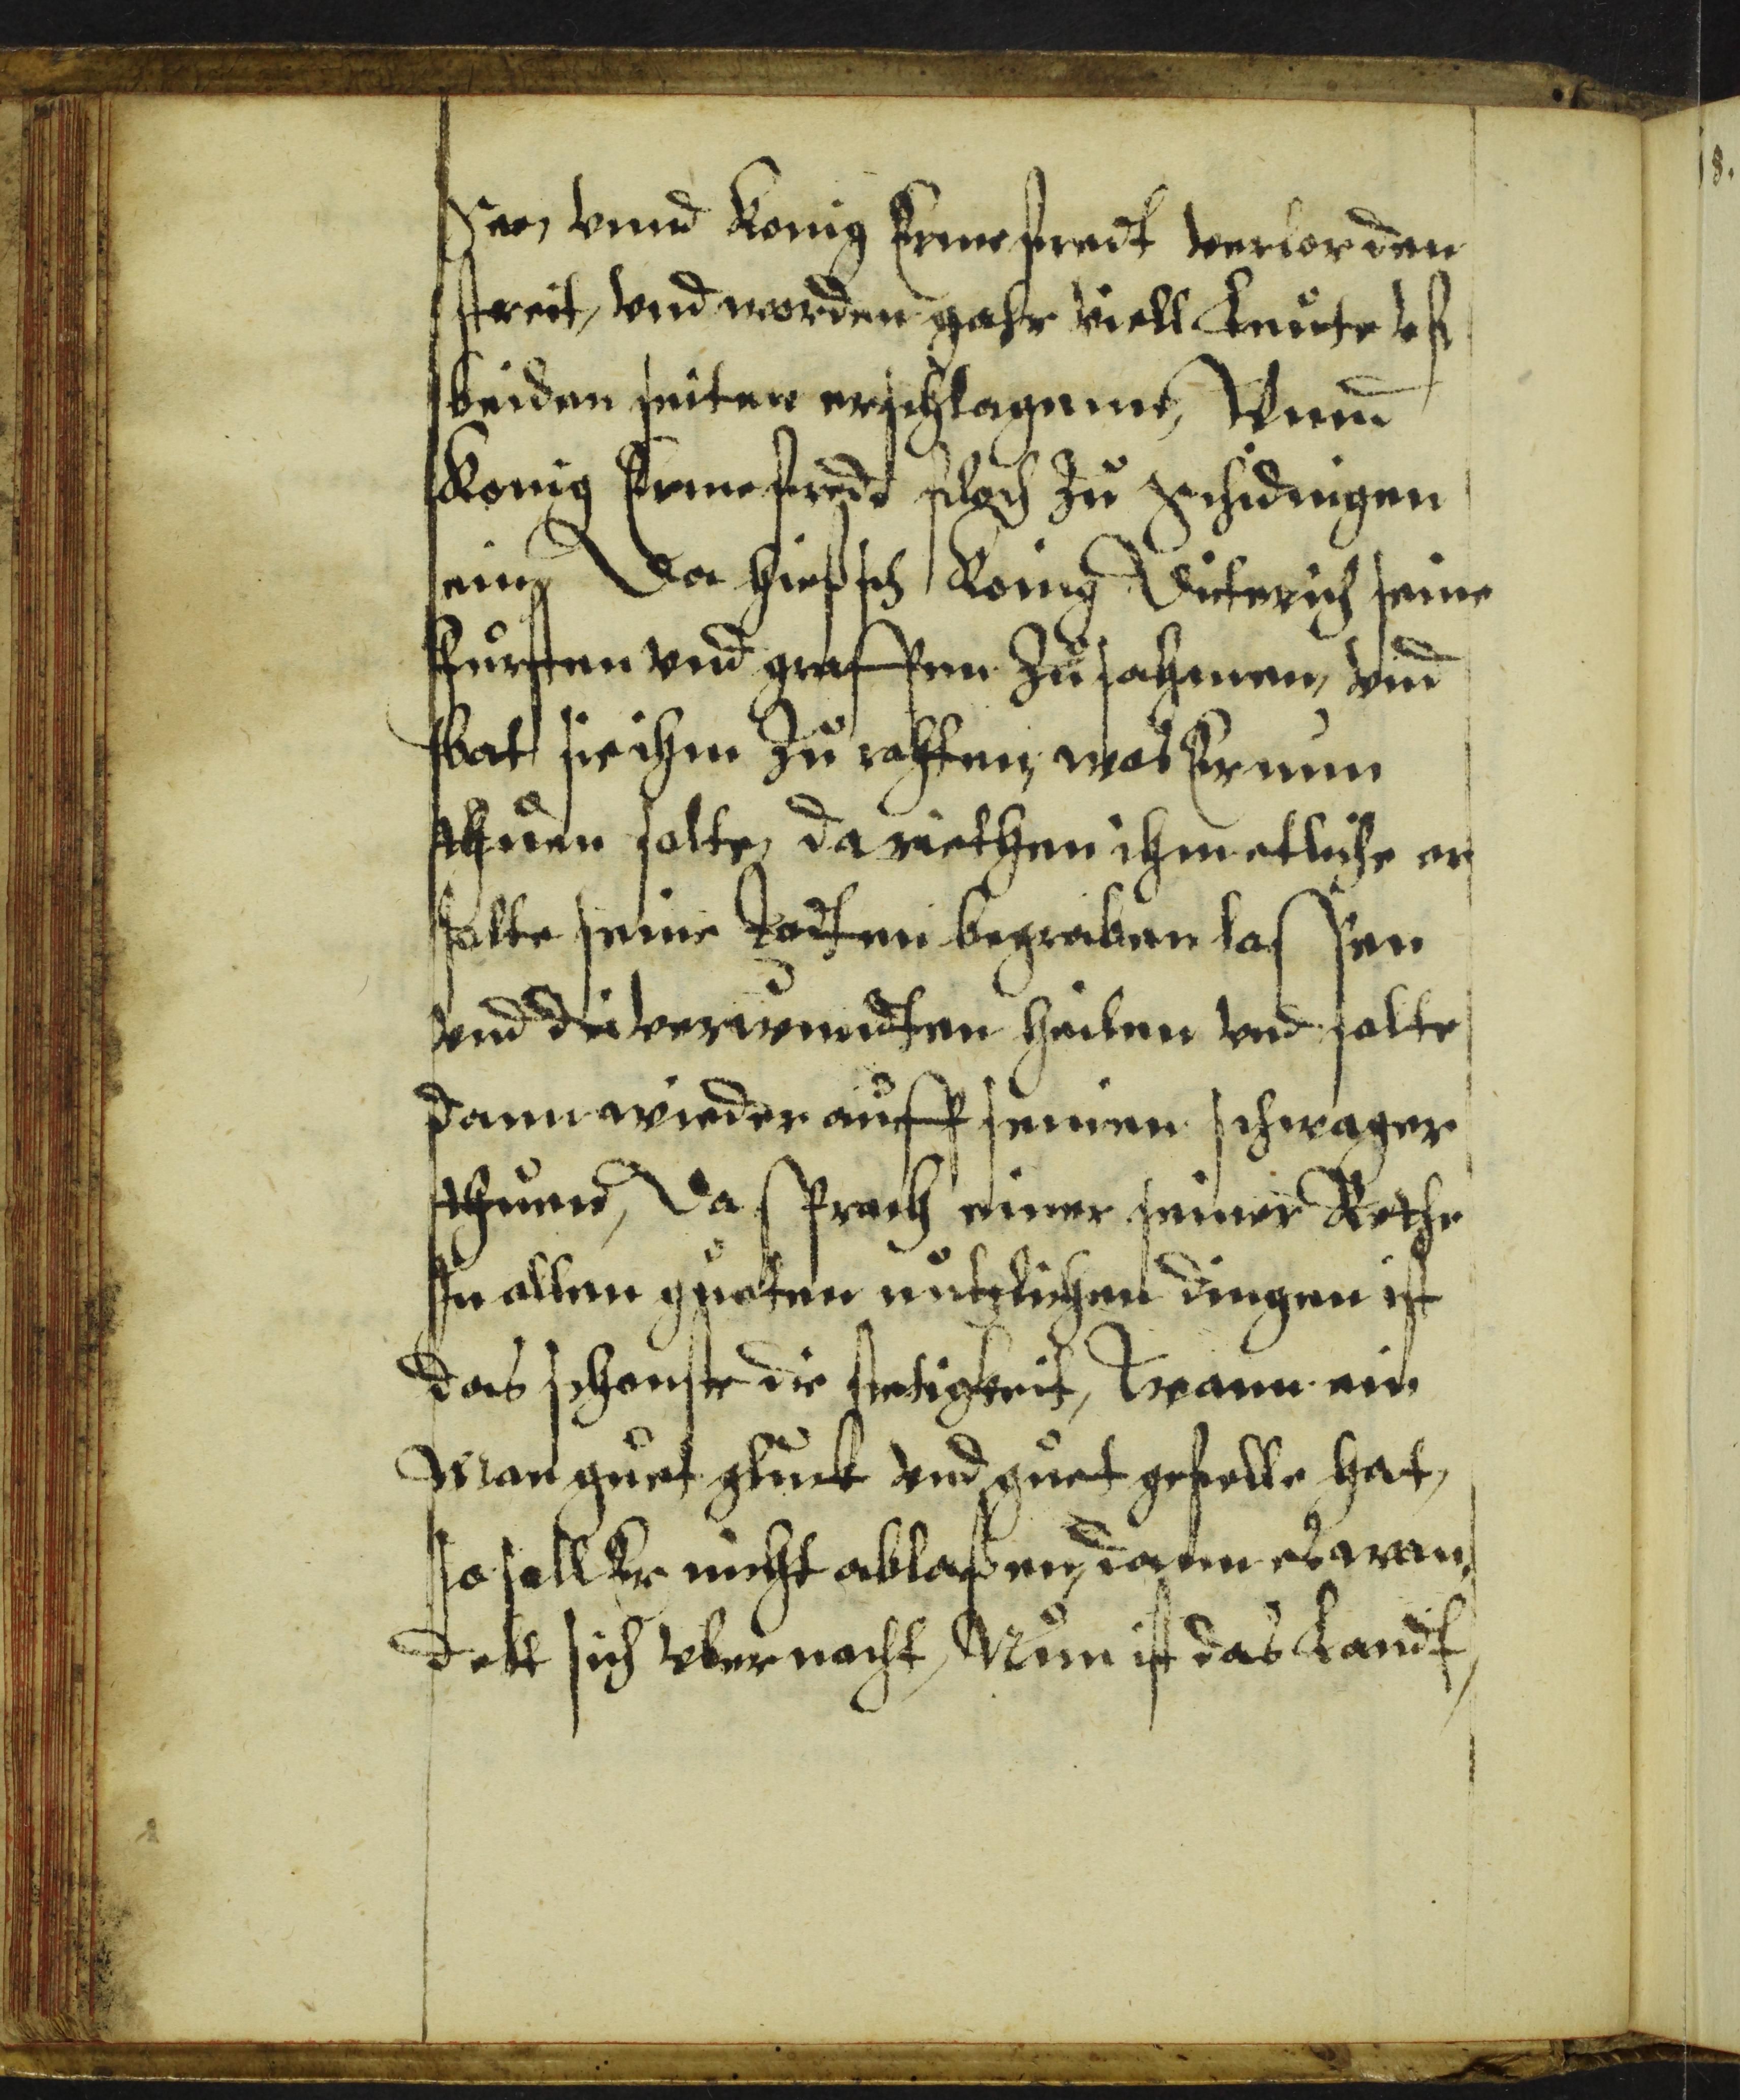 See, vnnd Konig Ermefredt verlor den
streit, vnd worden gahr viell Leuͤte vf
beiden seiten erschlagenn, Vnnd
Konig Ermefredt floch zuͦ Schidingen
ein, Da hiesch Konig Dieterich seine
fuͤrsten vnd graffenn zuͦsahmen, vnd
bat sie ihm zuͦ rahten, was Er nun
thuͦen solte, da riethen ihm etliche er
solte seine Todten begraben lassen
vnd die verwundten heilen vnd solte
dann wieder auͦff seinen schwager
thuͦen, Da sprach einer seiner Rethe
In allen guͦeten nuͤtzlichen dingen ist
das schonste die stetigkeit, Wann ein
Man guͦet gluͤck vnd guͦet gefelle hat,
so soll Er nicht ablaßen, dann es wan,
delt sich vber nacht, Nuͦn ist das Landt,
8.